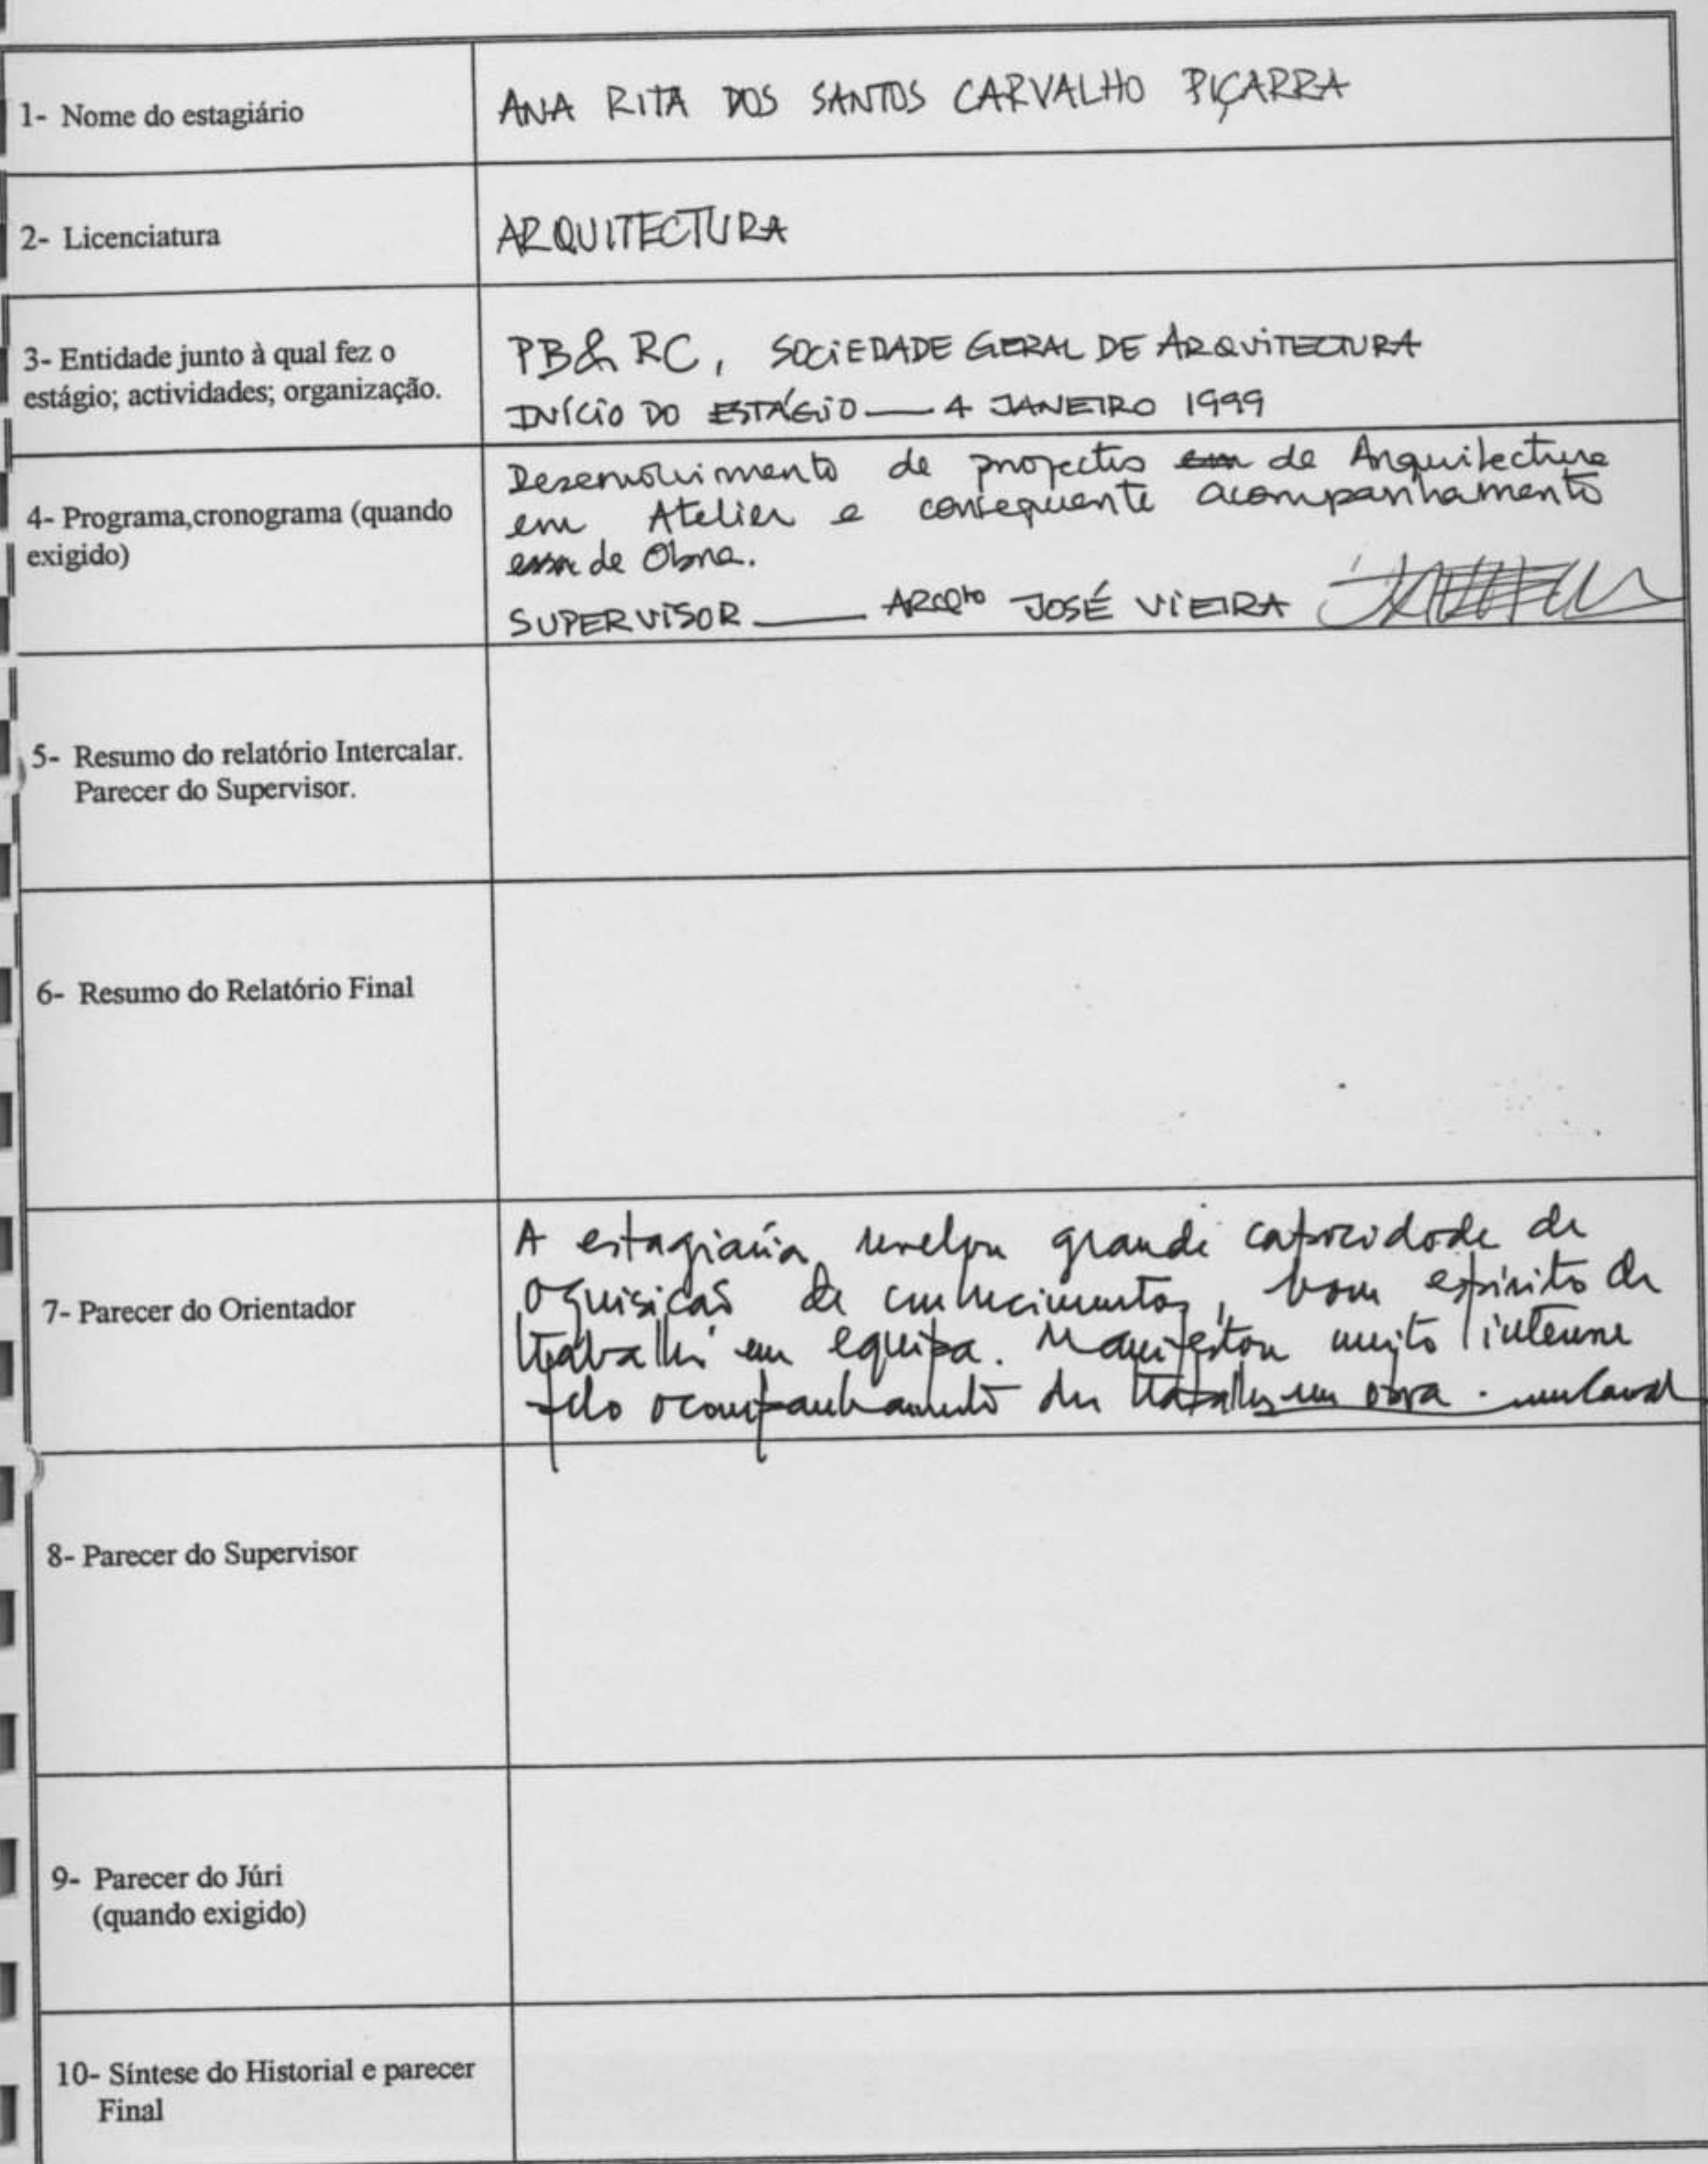 1- Nome do estagiário
ANA RITA DOS SANTOS CARVALHO PIÇARRA
2- Licenciatura
ARQUITECTURA
3- Entidade junto à qual fez o
estágio; actividades; organização.
PB& RC, SOCIEDADE GERAL DE ARQUITECTURA
INÍCIO DO ESTÁGIO — 4 JANEIRO 1999
4- Programa,cronograma (quando
exigido)
Desenvolvimento de projectos em de Arquitectura
em Atelier e consequente acompanhamento
em de Obra.
SUPERVISOR — ARQto JOSÉ VIEIRA
5- Resumo do relatório Intercalar.
Parecer do Supervisor.
6- Resumo do Relatório Final
7- Parecer do Orientador
A estagiária revelou grande capacidade de
aquisição de conhecimentos, bom espírito de
trabalho em equipa. Manifestou muito interesse
pelo acompanhamento dos trabalhos em obra.
8- Parecer do Supervisor
9- Parecer do Júri
(quando exigido)
10- Síntese do Historial e parecer
Final